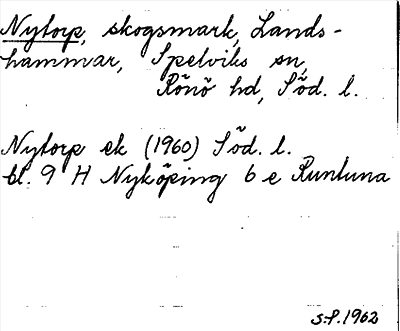 Nytorp, skogsmark, Lands-
hammar, Spelviks sn,
Rönö hd, Söd. l.
Nytorp ek (1960) Söd. l.
bl. 9 H Nyköping 6 e Runtuna
S.P. 1962